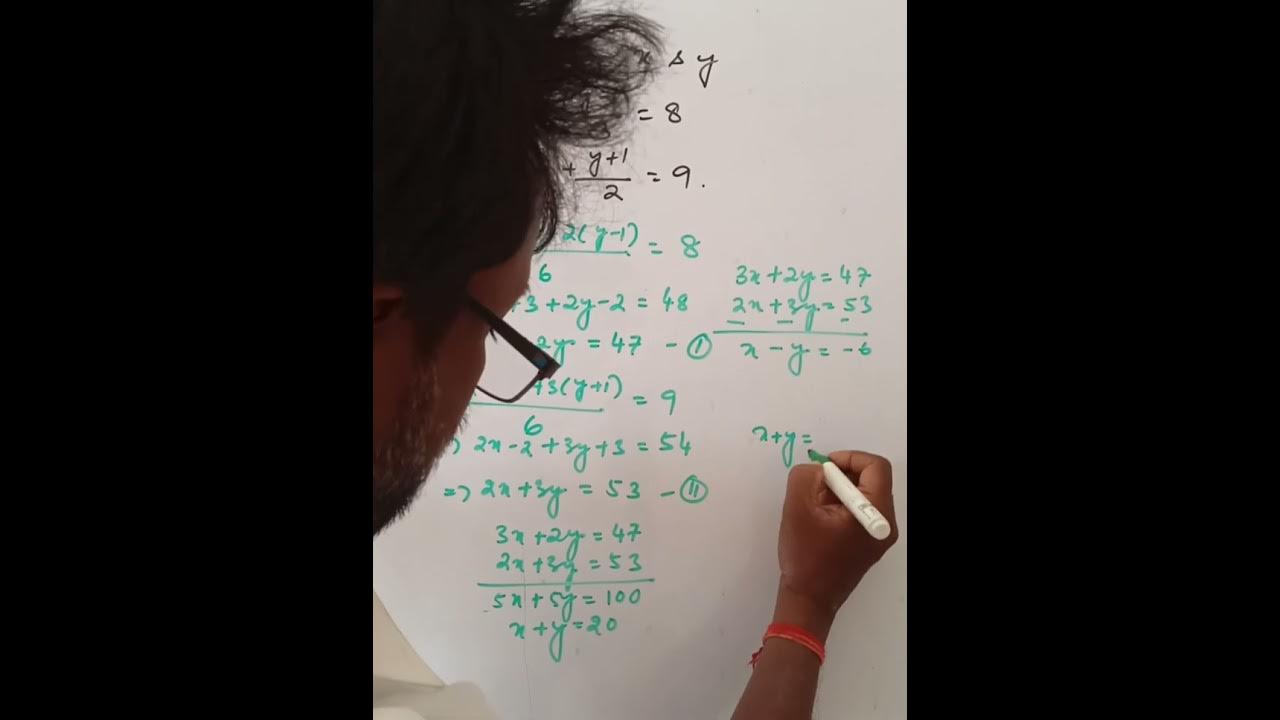 x & y
= 8
+ y+1/2 = 9.
2(y-1)/6 = 8
+3+2y-2 = 48
2y = 47 - (I)
+3(y+1)/6 = 9
2x-2+3y+3 = 54
=> 2x+3y = 53 - (II)
3x+2y=47
2x+3y=53
5x+5y=100
x+y=20
3x+2y=47
2x+3y=53
- - -
x-y=-6
x+y=